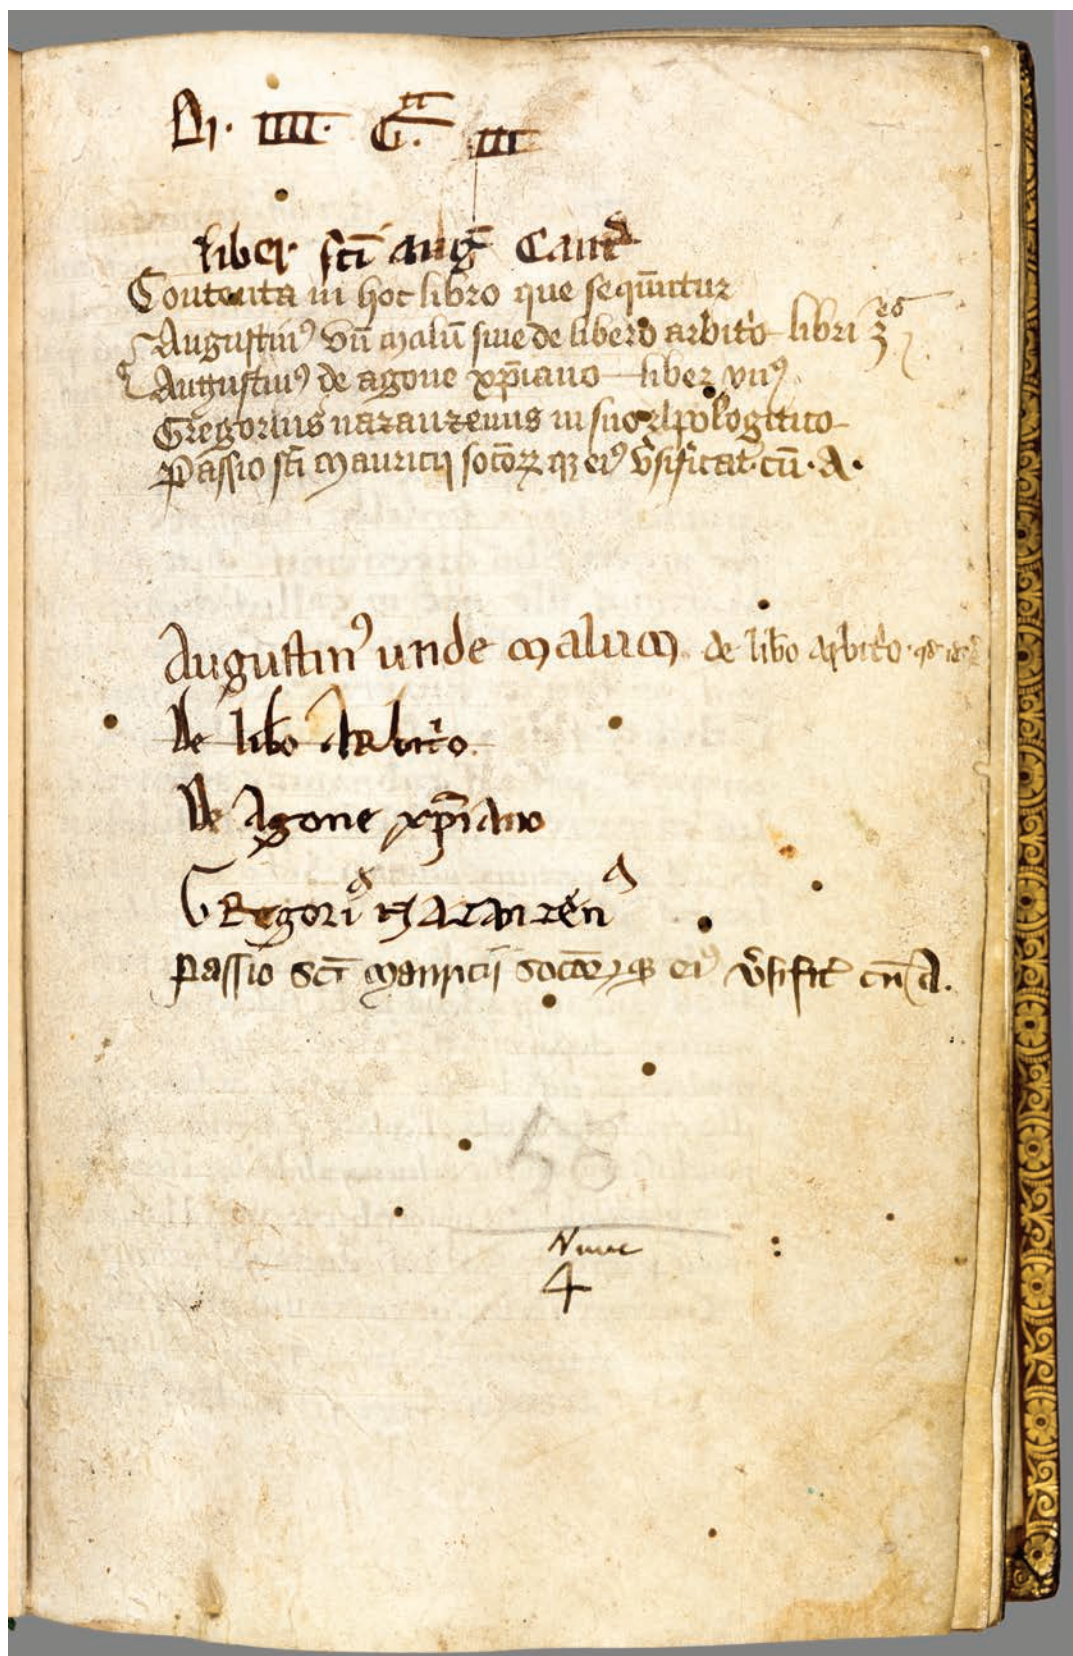 Dı. IIII. G.ᵃ III
liber sc̄i aug̅ Cantᵈ
Contenta in hoc libro que sequūtur
Augustinꝰ vn̄ malū siue de libero arbitͥo libri 3ᵉˢ
Augustinꝰ de agone xp̄iano liber vnꝰ
Gregorius nazanzenus in suo Apologitico
Passio sc̄i mauricij socioꝝ qꝫ eiꝰ v̓sificat̓ cū · A ·
Augustinꝰ unde malum de lib̓o arbitͥo
De lib̓o Arbitͥo.
De Agone xp̄iano
Gregoriꝰ Nazanzenꝰ
passio sc̄i mauricij socioꝝ qꝫ eiꝰ v̓sific̓ cū A.
58
Nunc
4